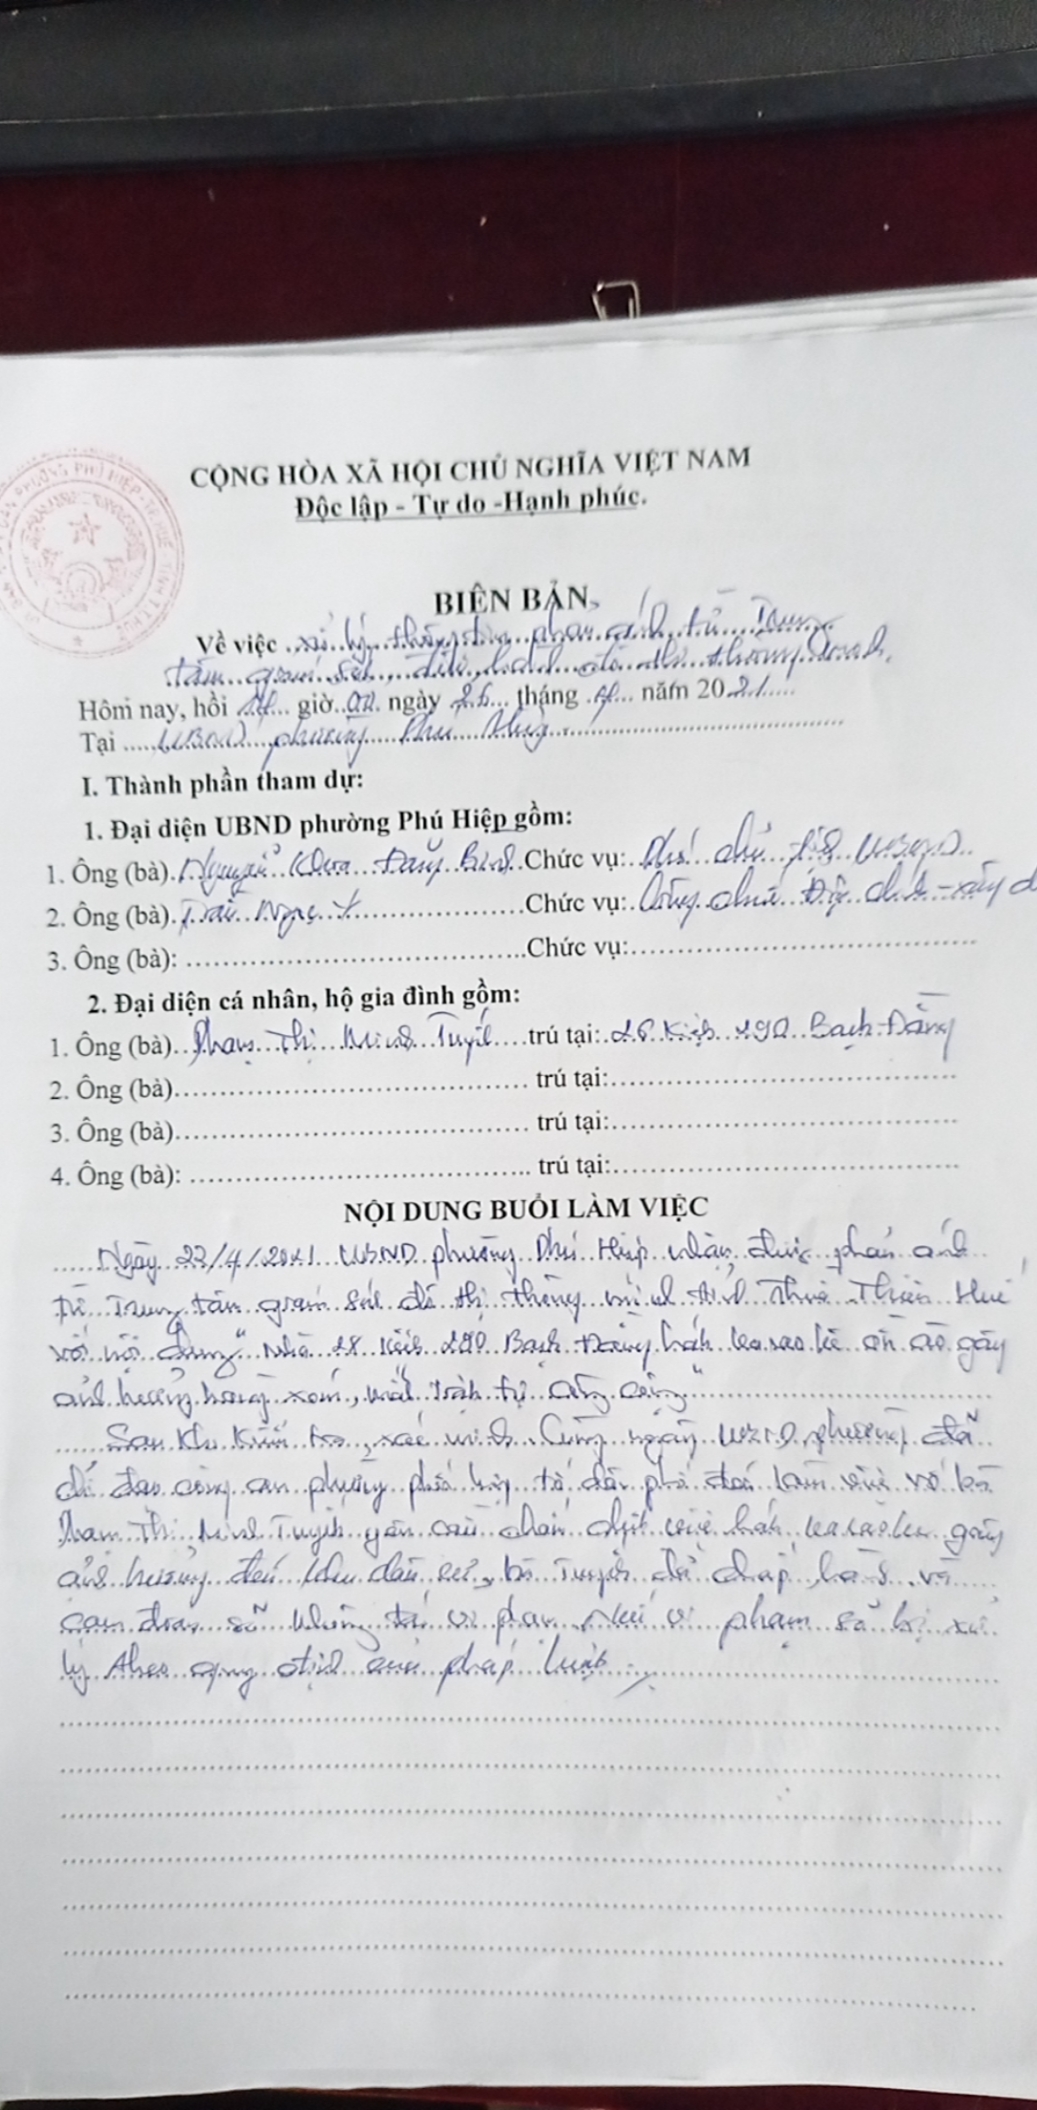 PHƯỜNG PHÚ HIỆP
CỘNG HÒA XÃ HỘI CHỦ NGHĨA VIỆT NAM
Độc lập - Tự do -Hạnh phúc.
BIÊN BẢN
Về việc xử lý thông tin phản ánh từ Trung
tâm giám sát, điều hành đô thị thông minh.
Hôm nay, hồi giờ 00 ngày tháng năm 2021
Tại UBND phường Phú Hiệp
I. Thành phần tham dự:
1. Đại diện UBND phường Phú Hiệp gồm:
1. Ông (bà). Nguyễn Khoa Đăng Chức vụ: Phó chủ tịch UBND
2. Ông (bà). Ngọc Chức vụ: Công chức Địa chính - xây d
3. Ông (bà): Chức vụ:
2. Đại diện cá nhân, hộ gia đình gồm:
1. Ông (bà). Phạm Thị Minh Tuyết trú tại: 28 Kiệt 290 Bạch Đằng
2. Ông (bà) trú tại:
3. Ông (bà) trú tại:
4. Ông (bà): trú tại:
NỘI DUNG BUỔI LÀM VIỆC
Ngày 22/4/2021 UBND phường Phú Hiệp nhận được phản ánh
từ Trung tâm giám sát đô thị thông minh tỉnh Thừa Thiên Huế
với nội dung " Nhà 28 Kiệt 290 Bạch Đằng hát karaoke ồn ào gây
ảnh hưởng hàng xóm, mất trật tự công cộng"
Sau khi kiểm tra, xác minh. Cùng ngày UBND phường đã
chỉ đạo công an phường phối hợp tổ dân phố đến làm việc với bà
Phạm Thị Minh Tuyết yêu cầu chấm dứt việc hát karaoke gây
ảnh hưởng đến khu dân cư, bà Tuyết đã chấp hành và
cam đoan sẽ không tái vi phạm. Nếu vi phạm sẽ bị xử
lý theo quy định của pháp luật.